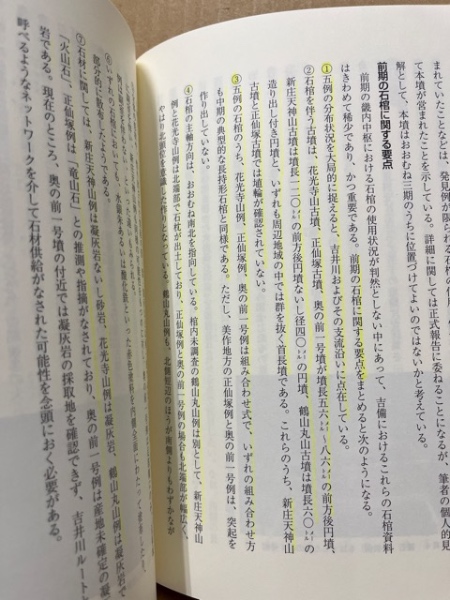 まれていたことなどは、発見例が限られる石棺の
て本墳が営まれたことを示している。詳細に関しては正式報告に委ねることになるが、筆者の個人的見
解として、本墳はおおむね三期のうちに位置づけてよいのではないかと考えている。
前期の石棺に関する要点
前期の畿内中枢における石棺の使用状況が判然としない中にあって、吉備におけるこれらの石棺資料
はきわめて稀少であり、かつ重要である。前期の石棺に関する要点をまとめると次のようになる。
①五例の分布状況を大局的に捉えると、吉井川およびその支流沿いに点在している。
②石棺を伴う古墳は、花光寺山古墳、正仙塚古墳、奥の前一号墳が墳長五六〜八六㍍の前方後円墳、
新庄天神山古墳は墳長一二〇㍍の前方後円墳ないし径四〇㍍の円墳、鶴山丸山古墳は墳長六〇㍍の
造り出し付き円墳と、いずれも周辺地域の中では群を抜く首長墳である。これらのうち、新庄天神山
古墳と正仙塚古墳では埴輪が確認されていない。
③五例の石棺のうち、花光寺山例、正仙例、奥の前一号例は組み合わせ式で、いずれの組み合わせ方
も中期の典型的な長持形石棺と同様である。ただし、美作地方の正仙塚例と奥の前一号例は、突起を
作り出していない。
④石棺の主軸方向は、おおむね南北を指向している。棺内未調査の鶴山丸山例は別として、新庄天神山
例と花光寺山例は北端部で石枕が出土しており、正仙塚例と奥の前一号例の場合も北端部が幅広く、
やはり北頭位を意識した作りとなっている。鶴山丸山例も、北側短辺のほうが南側よりもわずかなが
⑥いずれの石棺においても、水銀朱あるいは酸化鉄といった赤色塗料を
部分的に散布したようである。
⑦石材に関しては、新庄天神山例は凝灰岩ないし砂岩、花光寺山例は凝灰岩、鶴山丸山例は凝灰岩で
「火山石」、正仙塚例は「竜山石」との推測や指摘がなされており、奥の前一号例は産地未確定の凝
岩である。現在のところ、奥の前一号墳の付近では凝灰岩の採取地を確認できず、吉井川ルート
呼べるようなネットワークを介して石材供給がなされた可能性を念頭におく必要がある。